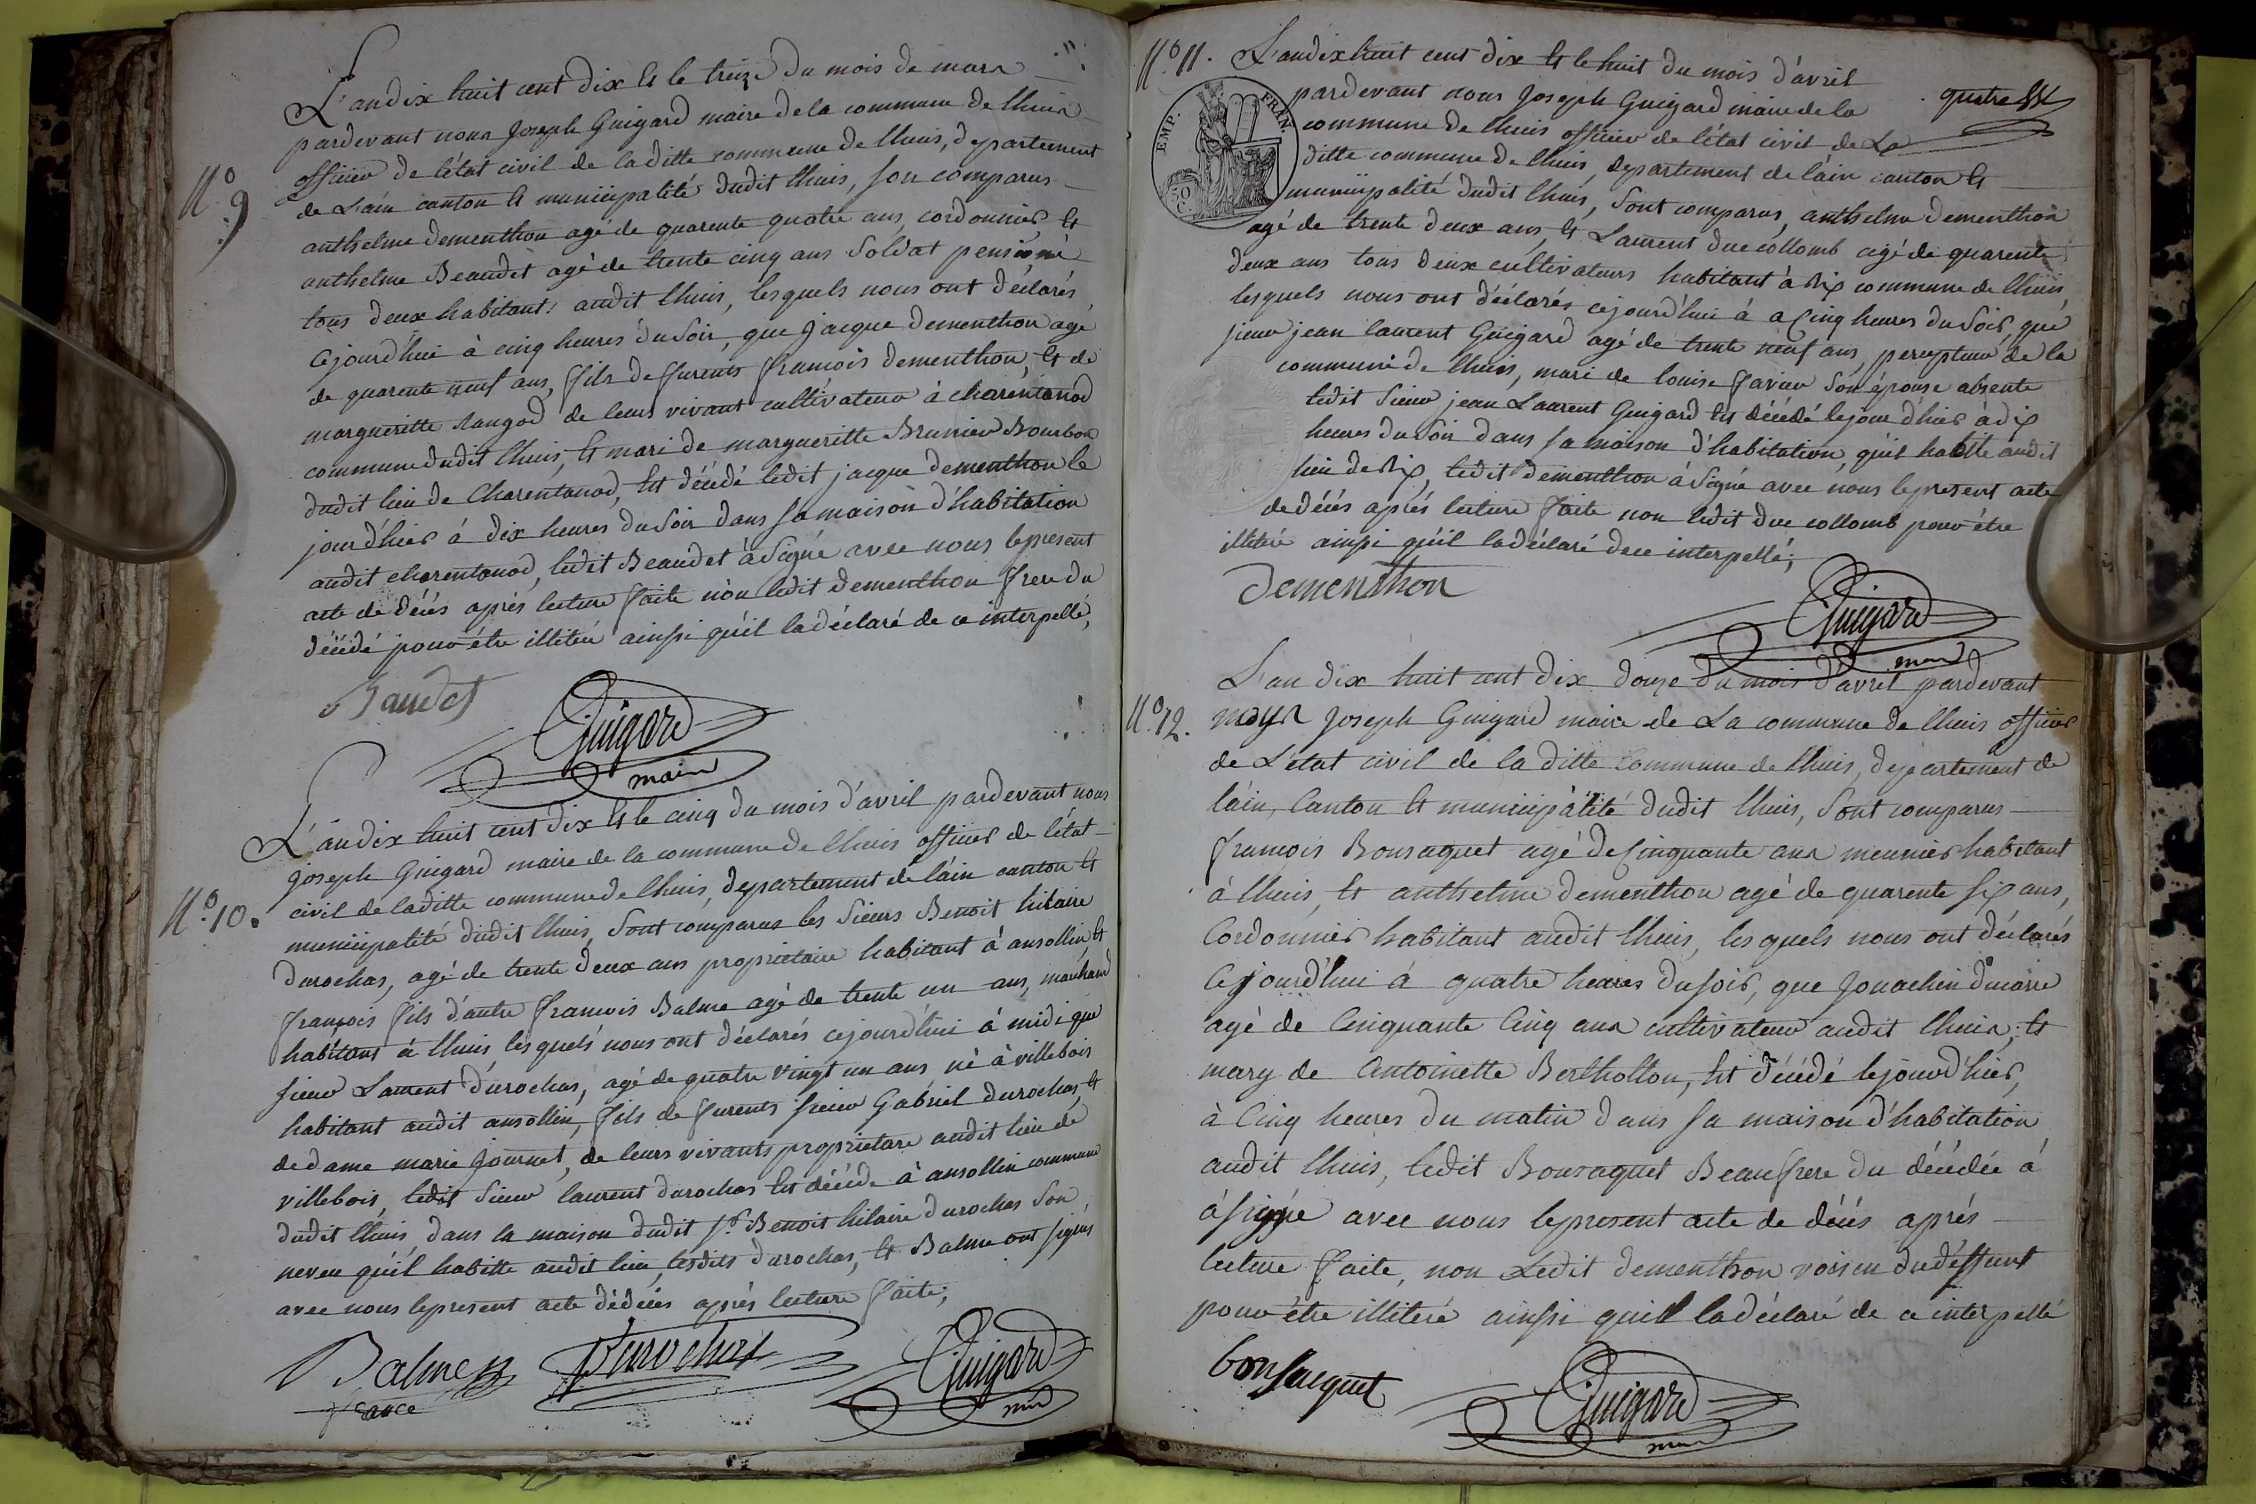 N.o 9
L'an dix huit cent dix et le treize du mois de mars
pardevant nous Joseph Guigard maire de la commune de lhuis
officier de l'état civil de la ditte commune de lhuis, departement
de L'ain canton et municipalité dudit lhuis, son comparus
anthelme dementhon agé de quarente quatre ans, cordonnier, et
anthelme Beaudet agé de trente cinq ans Soldat pensioné
tous deux habitants audit lhuis, lesquels nous ont déclarés
cejourd'hui à cinq heures du Soir, que jacque dementhon agé
de quarente neuf ans, fils de furents francois dementhon, et de
margueritte Rangod de leurs vivant cultivateur à charentonod
commune dudit lhuis, et mari de margueritte Brunier Bourbon
dudit lieu de Charentonod, est décédé ledit jacque dementhon le
jour d'hier à dix heures du Soir dans sa maison d'habitation
audit charentonod, ledit Beaudet à Signé avec nous le present
acte de décés aprés lecture faite non ledit dementhon frere du
décédé pour étre illiteré ainsi qu'il la déclaré de ce interpellé,
Baudet
Guigard
maire
N.o 10.
L'an dix huit cent dix et le cinq du mois d'avril pardevant nous
joseph Guigard maire de la commune de lhuis officier de l'état
civil de la ditte commune de lhuis, departement de l'ain canton et
municipalité dudit lhuis, Sont comparus les Sieurs Benoit hilaire
durochas, agé de trente deux ans proprietaire habitant à ansollin, et
françois fils d'autre francois Balme agé de trente un ans, marchand
habitant à lhuis, lesquels nous ont déclarés cejourd'hui à midi que
sieur Laurent durochas, agé de quatre vingt un ans né à villebois
habitant audit ansollin, fils de furents sieur Gabriel durochas, et
de dame marie journet, de leurs vivants proprietare audit lieu de
villebois, ledit Sieur laurent durochas est décédé à ansollin commune
dudit lhuis dans la maison dudit Sr. Benoit hilaire durochas Son
neveu qu'il habitte audit lieu, lesdits durochas, et Balme ont signés
avec nous le present acte dédécés aprés lecture faite;
Balme
Durochas
Guigard
N.o 11.
L'an dix huit cent dix et le huit du mois d'avril
pardevant nous Joseph Guigard maire de la
commune de lhuis officier de l'état civil de La
ditte commune de lhuis, departement de l'ain canton et
municipalité dudit lhuis, Sont comparus, anthelme dementhon
agé de trente deux ans, et Laurent duc collomb agé de quarente
deux ans tous deux cultivateurs habitant à Rix commune de lhuis
lesquels nous ont déclarés cejourd'hui à a cinq heures du Soir, que
sieur jean laurent Guigard agé de trente neuf ans, percepteur de la
commune de lhuis, mari de louise favier Son épouse absente
ledit Sieur jean Laurent Guigard est décédé le jour d'hier à dix
heures du Soir dans sa maison d'habitation, qu'il habitte audit
lieu de Rix, ledit dementhon à Signé avec nous le present acte
de décés aprés lecture faite non ledit duc collomb pour étre
illiteré ainsi qu'il la déclaré de ce interpellé;
quatre
EMP. FRAN.
50
C
Dementhon
Guigard
N.o 12.
L'an dix huit cent dix douze du mois d'avril pardevant
nous Joseph Guigard maire de La commune de lhuis officier
de L'état civil de la ditte commune de lhuis, departement de
l'ain, Canton et municipalité dudit lhuis, Sont comparus
francois Bonsaquet agé de Cinquante ans meunier habitant
à lhuis, et anthelme dementhon agé de quarente six ans,
Cordonnier habitant audit lhuis, lesquels nous ont déclarés
Cejourd'hui à quatre heures du soir, que Jouachin
agé de Cinquante Cinq ans cultivateur audit lhuis, et
mary de Antoinette Bertholton, est décédé le jour d'hier,
à Cinq heures du matin dans sa maison d'habitation
audit lhuis, ledit Bonsaquet Beaufrere du décédée à
à signé avec nous le present acte de décés aprés
lecture faite, non Ledit dementhon voisin du deffunt
pour étre illiteré ainsi qu'il la déclaré de ce interpellé
bonsacquet
Guigard